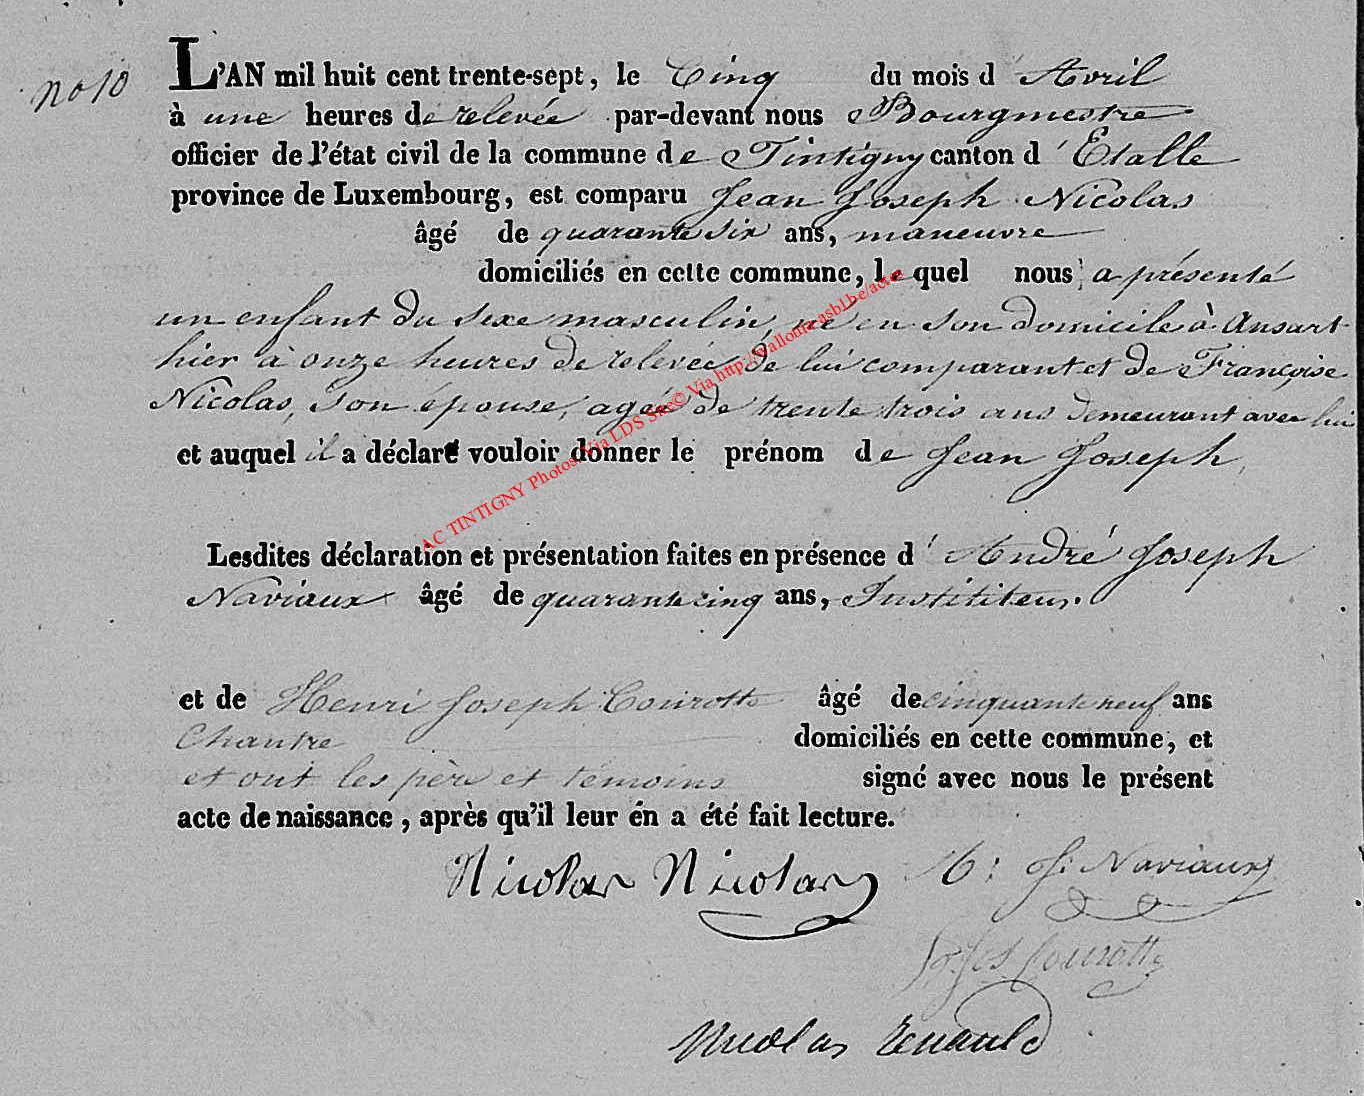 no 10
L'AN mil huit cent trente-sept, le Cinq du mois d'Avril
à une heures de relevée par-devant nous Bourgmestre
officier de l'état civil de la commune de Tintigny canton d'Etalle
province de Luxembourg, est comparu Jean Joseph Nicolas
âgé de quarante six ans, maneuvre
domiciliés en cette commune, le quel nous a présenté
un enfant du sexe masculin, né en son domicile à Ansart
hier à onze heures de relevée de lui comparant et de Françoise
Nicolas, son épouse, agée de trente trois ans demeurant avec lui
et auquel il a déclaré vouloir donner le prénom de Jean Joseph,
AC TINTIGNY Photos Via LDS Site© Via http://wallonia-asbl.be/actes
Lesdites déclaration et présentation faites en présence d'André Joseph
Naviaux âgé de quarante cinq ans, Instititeur.
et de Henri Joseph Courotte âgé de cinquante neuf ans
Chantre domiciliés en cette commune, et
et ont les père et témoins signé avec nous le présent
acte de naissance, après qu'il leur én a été fait lecture.
Nicolas Nicolas J. Naviaux
Jos Courotte
Nicolas Renauld